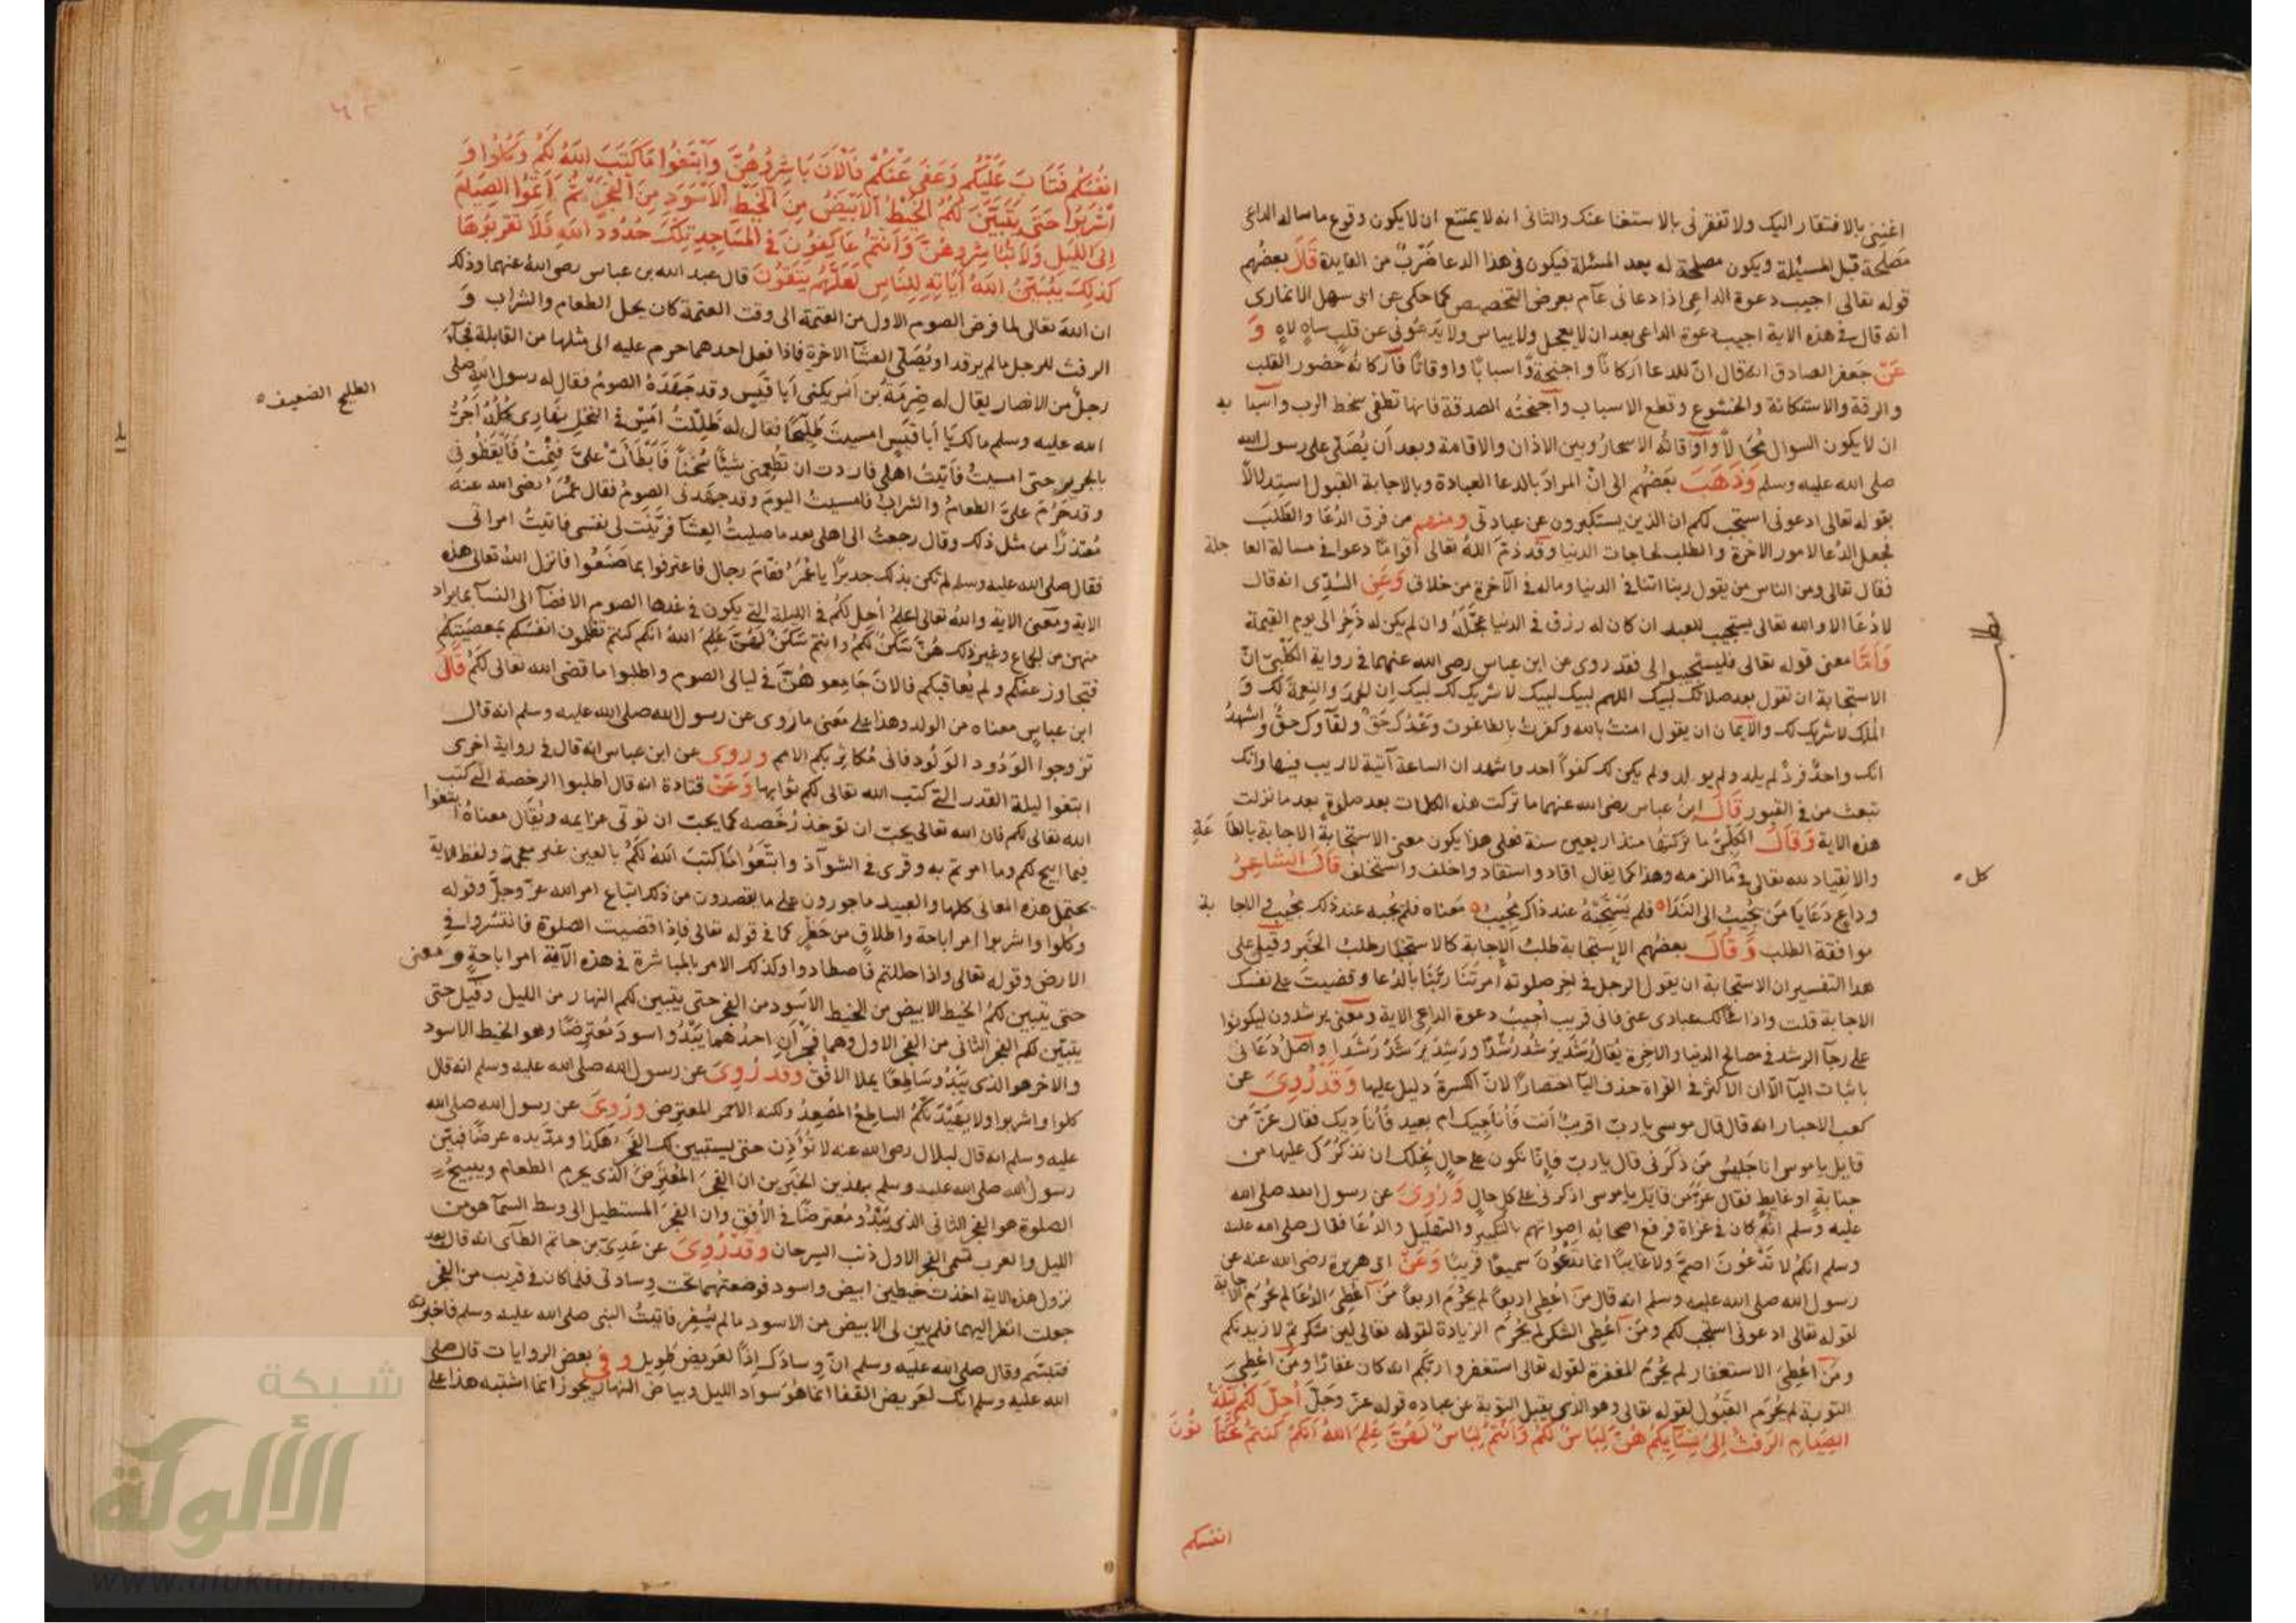 اغنني بالافتقار اليك ولا تفقرني بالاستغنا عنك والثاني انه لا يمتنع ان لا يكون وقوع ما ساله الداعي
مصلحة قبل المسئلة ويكون مصلحة له بعد المسئلة فيكون في هذا الدعا ضَربٌ من الفايدة قَالَ بعضهم
قوله تعالى اجيب دعوة الداعي اذا دعاني عآم بعرض التخصيص كما حكي عن ابي سهل الانماري
انه قال في هذه الاية اجيب دعوة الداعي بعد ان لا يعجل ولا يياس ولا يدعوني عن قلب ساهٍ لاهٍ وَ
عَنْ جعفر الصادق انه قال انّ للدعا اركانًا واجنحةً واسبابًا واوقاتًا فاركانه حضور القلب
والرقة والاستكانة والخشوع وقطع الاسباب واجنحته الصدقة فانها تطفي سخط الرب واسبا به
ان لا يكون السوال مُحَالًا واوقاته الاسحار وبين الاذان والاقامة وبعد ان يُصَلّى على رسول الله
صلى الله عليه وسلم وَذَهَبَ بعضهم الى انّ المراد بالدعا العبادة وبالاجابة القبول استدلالًا
بقوله تعالى ادعوني استجب لكم ان الذين يستكبرون عن عبادتي ومنهم من فرق الدعا والطلب
فجعل الدعا لامور الاخرة والطلب لحاجات الدنيا وقد ذمّ الله تعالى اقوامًا دعوا في مسالة العا جلة
فقال تعالى ومن الناس من يقول ربنا اتنا في الدنيا وماله في الآخرة من خلاق وَعَنِ السُّدّي انه قال
لا دُعَا الا والله تعالى يستجيب للعبد ان كان له رزق في الدنيا عجَّلَهُ وان لم يكن له ذُخِر الى يوم القيمة
وَاَمَّا معنى قوله تعالى فليستجيبوا لي فقد روي عن ابن عباس رضي الله عنهما في رواية الكلبي انّ
الاستجابة ان تقول بعد صلاتك لبيك اللهم لبيك لبيك لا شريك لك لبيك ان الحمد والنعمة لك وَ
الملك لا شريك لك والايمان ان يقول امنت بالله وكفرت بالطاغوت وعدك حق ولقآوك حقٌ واشهدُ
انك واحدٌ فردٌ لم يلد ولم يولد ولم يكن لك كفوًا احد واشهد ان الساعة آتية لا ريب فيها وانك
تبعث من في القبور قَالَ ابن عباس رضي الله عنهما ما تركت هذه الكلمات بعد صلوة بعد ما نزلت
هذه الاية وَقَالَ الكلبيُّ ما تركتها منذ اربعين سنة فعلى هذا يكون معنى الاستجابة الاجابة بالطا عة
والانقياد لله تعالى في كل ما الزمه وهذا كما يقال اقاد واستقاد واخلف واستخلف قال الشاعرُ
وداعٍ دعا يا من يجيب الى الندا ه فلم يستجبه عند ذاك مُجيبُ ه معناه فلم يجبه عند ذلك مجيب والاجا بة
موافقة الطلب وَقَالَ بعضهم الاستجابة طلب الاجابة كالاستخبار طلب الخبر وقيل على
هذا التفسير ان الاستجابة ان يقول الرجل في اخر صلوته امرتنا ربنا بالدعا وقضيت على نفسك
الاجابة قلت واذا سالك عبادي عني فاني قريب اجيب دعوة الداعي الاية ومعنى يرشدون ليكونوا
على رجآ الرشد في مصالح الدنيا والاخرة يُقالُ رَشَدَ يَرشُد رُشدًا ورَشِدَ يَرشَدُ رَشَدا واصل دعاني
باثبات اليآ الّا ان الاكثر في القراة حذف اليآ اختصارًا لانّ الكسرة دليل عليها وَقَدْ رُوِيَ عن
كعب الاحبار انه قال قال موسى يا ربّ اقريبٌ انت فاُناجيك ام بعيد فاُناديك فقال عزّ من
قايل يا موسى انا جليس من ذكرني قال يا ربّ فانّا نكون على حالٍ نُجِلّك ان نذكرك عليها من
جنابةٍ او غايطٍ فقال عزّ من قايل يا موسى اذكرني على كل حالٍ وَرُوِيَ عن رسول الله صلى الله
عليه وسلم انه كان في غزاة فرفع اصحابه اصواتهم بالتكبير والتهليل والدعا فقال صلى الله عليه
وسلم انكم لا تدعون اصمَّ ولا غايبًا انما تدعون سميعًا قريبًا وَعَنْ ابي هريرة رضي الله عنه عن
رسول الله صلى الله عليه وسلم انه قال من اُعطي اربعًا لم يحرم اربعًا مَن اُعطي الدعا لم يُحرم الاجابة
لقوله تعالى ادعوني استجب لكم ومن اُعطي الشكر لم يُحرَم الزيادة لقوله تعالى لين شكرتم لازيدنكم
ومن اُعطي الاستغفار لم يُحرم المغفرة لقوله تعالى استغفروا ربكم انه كان غفارًا ومن اُعطي
التوبة لم يُحرم القبول لقوله تعالى وهو الذي يقبل التوبة عن عباده قوله عزّ وجلّ اُحِلَّ لَكُمْ لَيْلَةَ
الصِيَامِ الرَفَثُ اِلَى نِسَآيِكُمْ هُنَّ لِبَاسٌ لَكُمْ وَاَنْتُمْ لِبَاسٌ لَهُنَّ عَلِمَ اللهُ اَنَّكُمْ كُنْتُمْ تَخْتَا نُونَ
انفسكم
كل ه
اَنْفُسَكُمْ فَتَابَ عَلَيْكُمْ وَعَفَى عَنْكُمْ فَالْآنَ بَاشِرُوهُنَّ وَابْتَغُوا مَا كَتَبَ اللهُ لَكُمْ وَكُلُوا وَ
اشْرَبُوا حَتَّى يَتَبَيَّنَ لَكُمُ الْخَيْطُ الْاَبْيَضُ مِنَ الْخَيْطِ الْاَسْوَدِ مِنَ الْفَجْرِ ثُمَّ اَتِمُّوا الصِيَامَ
اِلَى اللَيْلِ وَلَا تُبَاشِرُوهُنَّ وَاَنْتُمْ عَاكِفُونَ فِي الْمَسَاجِدِ تِلْكَ حُدُودُ اللهِ فَلَا تَقْرَبُوهَا
كَذلِكَ يُبَيِّنُ اللهُ آيَاتِهِ لِلنَّاسِ لَعَلَّهُمْ يَتَّقُونَ قال عبد الله بن عباس رضي الله عنهما وذلك
ان الله تعالى لما فرض الصوم الاول من العتمة الى وقت العتمة كان يحل الطعام والشراب وَ
الرفث للرجل ما لم يرقد او يُصَلّي العشآ الاخرة فاذا فعل احدهما حرم عليه الى مثلها من القابلة فجآءَ
رجلٌ من الانصار يقال له صِرمَة بن انس يكنى ابا قيس وقد جَهَدَهُ الصومُ فقال له رسول الله صلى
الله عليه وسلم مالك يا ابا قيس امسيت طليحًا فقال له ظللتُ امس في النخل نهاري كله اَجُرُّ
بالجرير حتى امسيتُ فاتيتُ اهلي فاردت ان تطعمني شيئًا سُخنًا فابطأت عليَّ فنمتُ فايقظوني
وقد حَرُمَ عليَّ الطعامُ والشراب فامسيت اليوم وقد جهدني الصومُ فقال عُمَرُ رضي الله عنه
مُعتذرًا من مثل ذلك وقال رجعتُ الى اهلي بعد ما صليتُ العشآ فزيّنت لي نفسي فاتيتُ امراتي
فقال صلى الله عليه وسلم لم تكن بذلك جديرًا يا عُمَرُ فقام رجال فاعترفوا بما صنعُوا فانزل الله تعالى هذه
الاية ومعنى الاية والله تعالى اعلمُ اُحل لكم في الليلة التي يكون في غدها الصوم الافضآ الى النسآ بما يراد
منهن من الجماع وغير ذلك هُنَّ سَكَنٌ لكم وانتم سَكَنٌ لهُنّ عَلِمَ اللهُ انكم كنتم تظلمون انفسكم بمعصيتكم
فتجاوز عنكم ولم يُعاقبكم فالان جَامِعوهُنّ في ليالي الصوم واطلبوا ما قضى الله تعالى لكم قَالَ
ابن عباس معناه من الولد وهذا على معنى ما رُوي عن رسول الله صلى الله عليه وسلم انه قال
تزوجوا الوَدُود الوَلُود فاني مُكاثرٌ بكم الامم وروي عن ابن عباس انه قال في رواية اخرى
ابتغوا ليلة القدر التي كتب الله تعالى لكم ثوابها وَعَنْ قتادة انه قال اطلبوا الرخصة التي كتب
الله تعالى لكم فان الله تعالى يحب ان توخذ رُخَصه كما يحب ان توتى عزايمه ويُقال معناهُ ابتغوا
فيما ابيح لكم وما امرتم به وقري في الشوآذ واتبعُوا مَا كتَبَ اللهُ لكم بالعين غير معجمة ولفظ الاية
يحتمل هذه المعاني كلها والعبيد ماجورون على ما يقصدون من ذلك اتباع امر الله عزّ وجلّ وقوله
وكلوا واشربوا امر اباحة واطلاقٍ من حَظرٍ كما في قوله تعالى فاذا قضيت الصلوة فانتشروا في
الارض وقوله تعالى واذا حللتم فاصطادوا وكذلك الامر بالمباشرة في هذه الآية امر اباحةٍ ومعنى
حتى يتبين لكم الخيط الابيض من الخيط الاسود من الفجر حتى يتبين لكم النهار من الليل وقيل حتى
يتبيّن لكم الفجر الثاني من الفجر الاول وهما فجران احدهما يبدُو اسود مُعترضًا وهو الخيط الاسود
والاخر هو الذي يبدُو ساطعًا يملا الافق وقد رُوِيَ عن رسول الله صلى الله عليه وسلم انه قال
كلوا واشربوا ولا يهيدنّكم الساطع المُصعِدُ ولكنه الاحمر المعترض وَرُوِيَ عن رسول الله صلى الله
عليه وسلم انه قال لبلال رضي الله عنه لا تُؤَذِّن حتى يستبين لك الفجر هكذا ومدّ يده عرضًا فبيّن
رسول الله صلى الله عليه وسلم بهذين الخبرين ان الفجرَ المُعترضَ الذي يحرم الطعام ويبيحُ
الصلوة هو الفجر الثاني الذي يبدُو مُعترضًا في الاُفق وان الفجرَ المستطيل الى وسط السمآ هو من
الليل والعرب تسمي الفجر الاول ذنب السرحان وَقَدْ رُوِيَ عن عديّ بن حاتم الطآئي انه قال بعد
نزول هذه الاية اخذت خيطين ابيض واسود فوضعتهما تحت وسادتي فلما كان في قريب من الفجر
جعلت انظر اليهما فلم يبن لي الابيض من الاسود ما لم يُسفِر فاتيتُ النبي صلى الله عليه وسلم فاخبرته
فتبسّم وقال صلى الله عليه وسلم انّ وسادك اذًا لعريض طويل وفي بعض الروايات قال صلى
الله عليه وسلم انك لعريض القفا انما هو سواد الليل وبياض النهار يجوز انما اشتبه هذا على
الطليح الضعيف ه
شبكة
الألوكة
www.alukah.net